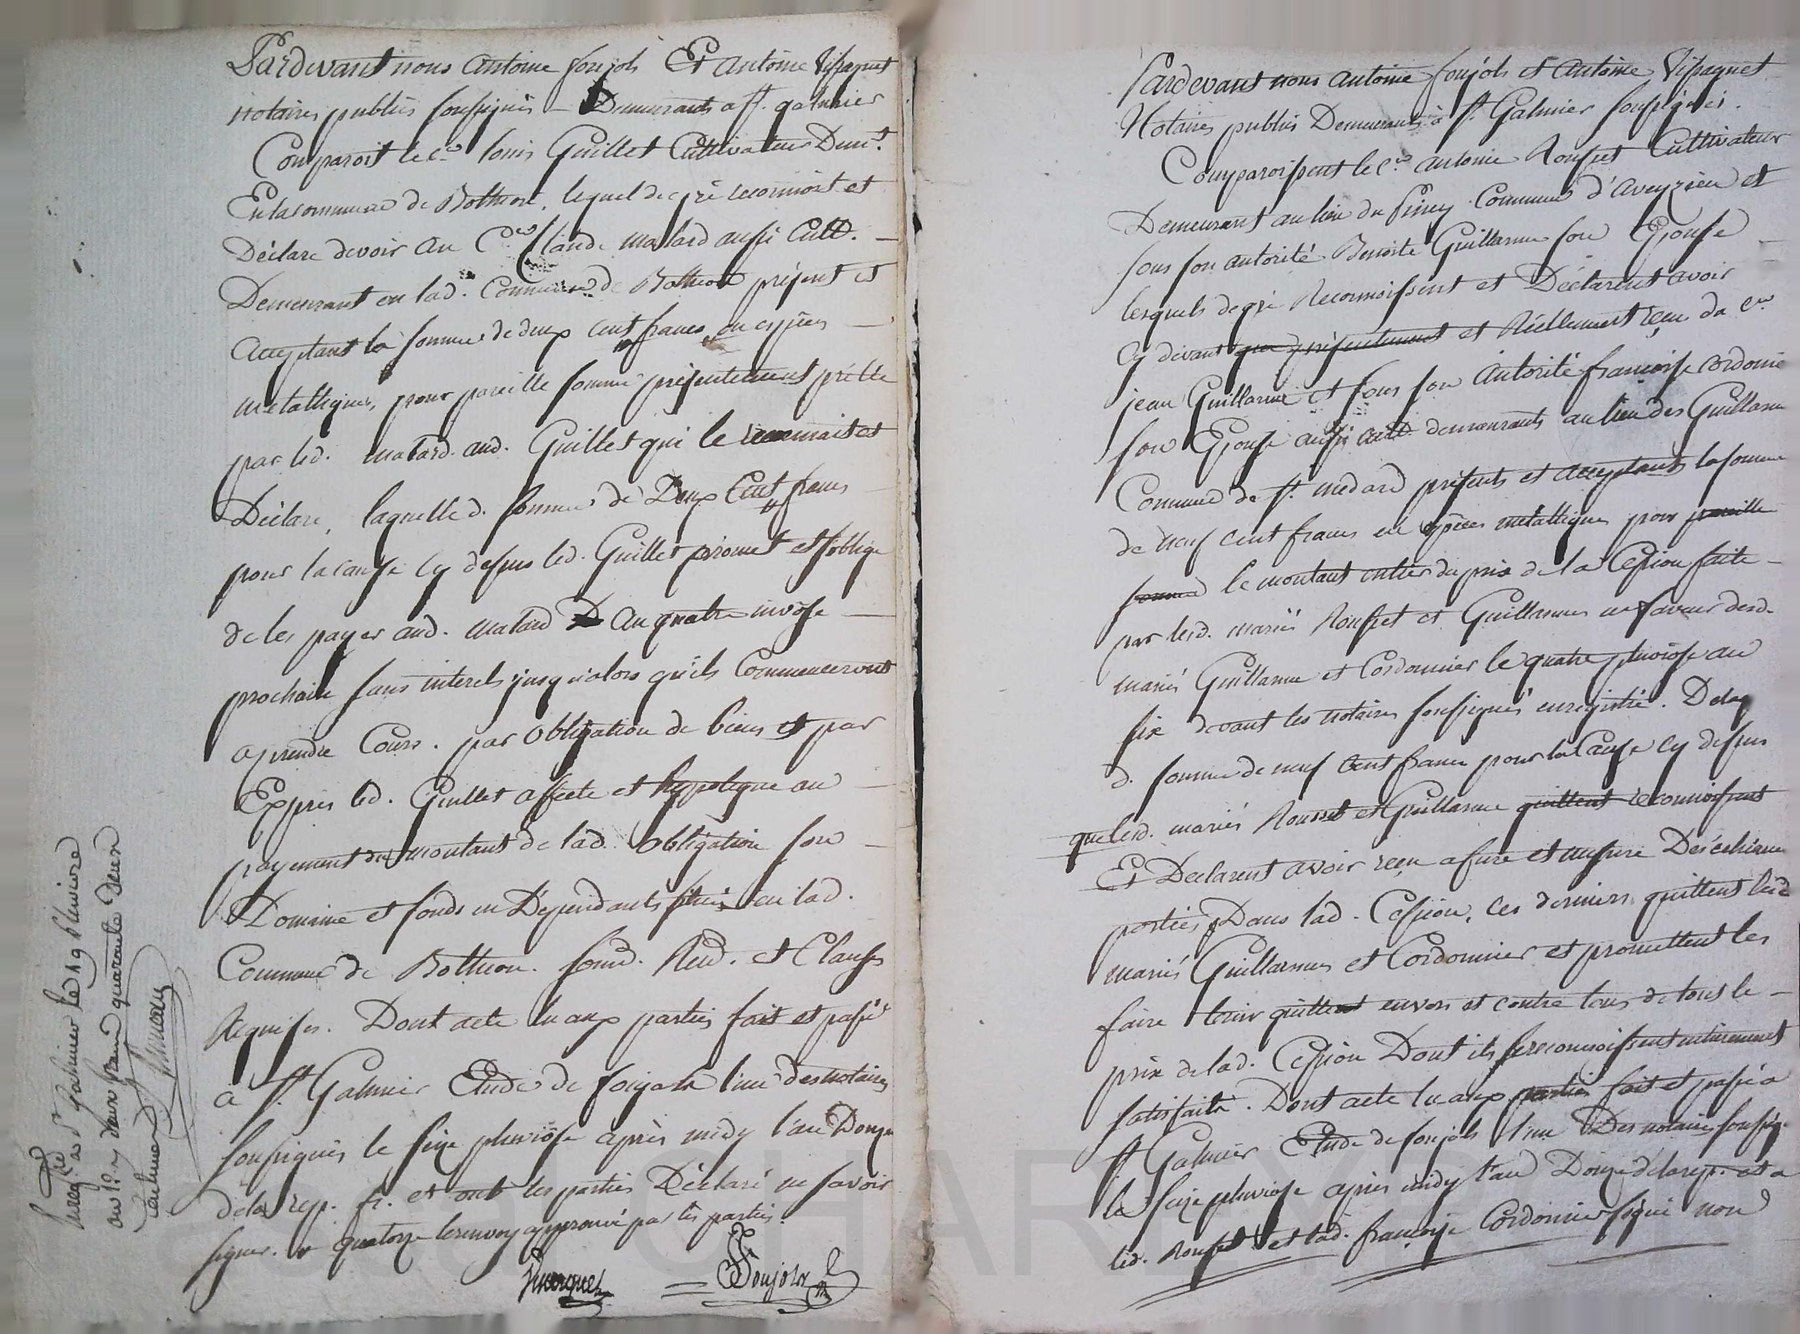 Pardevant nous antoine foujols Et antoine Vissaguet
notaires publics soussignés Demeurants a st. galmier
Comparoit le c.en louis Guillet Cultivateur Dem.t
En la commune de Botheon, lequel de gré reconnoit et
Déclare devoir au C.en Claude matard aussi Cult.
Demeurant en lad. Commune de Botheon présent et
acceptant la somme de deux cent francs en espèces
metalliques, pour pareille somme présentement prêtée
par led. matard aud. Guillet qui le et
Déclare, laquelle d. somme de Deux Cent francs
pour la cause cy dessus led. Guillet promet et soblige
de les payer aud. matard au quatre nivôse
prochain sans interets jusqu'alors qu'ils Commenceront
a prendre Cours. par obligation de biens et par
Exprès led. Guillet affecte et hypoteque au
payement du montant de lad. obligation son
Domaine et fonds en Dépendants situés en lad.
Commune de Botheon. soum. Ren. et Clauses
Requises. Dont acte lu aux parties fait et passé
a st. Galmier Etude de foujols l'un des notaires
soussignés le seize pluviôse après midy l'an Douze
de la rep. fr. et ont les parties Déclaré ne savoir
signer. quatorze le renvoy approuvé par les parties.
Foujols
Enreg.tré a St galmier le 19 Pluviose
an 12 deux francs quarante deux
centimes
Pardevant nous antoine foujols et antoine Vissaguet
Notaires publics Demeurants à st. Galmier soussignés.
Comparoissent le C.en antoine Rousset Cultivateur
Demeurant au lieu du Commune d'aveyzieu et
sous son autorité Benoite Guillarme son Epouse
lesquels de gré Reconnoissent et Déclarent avoir
cy devant que présentement et Réellement reçu du C.en
jean Guillarme et sous son autorité françoise cordonnier
son Epouse aussi cult. demeurants au lieu des Guillarme
Commune de st. medard présents et acceptants la somme
de neuf cent francs en espèces metalliques pour pareille
somme le montant entier du prix de la Cession faite
par lesd. mariés Rousset et Guillarme en faveur desd.
mariés Guillarme et Cordonnier le quatre pluviose an
six devant les notaires soussignés enregistré. De laq.
d. somme de neuf Cent francs pour la Cause cy dessus
que lesd. mariés Rousset et Guillarme quittent reconnoissent
Et Declarent avoir reçu a fure et mesure Des échéances
portées Dans lad. Cession, ces derniers quittent lesd.
mariés Guillarme et Cordonnier et promettent les
faire tenir quittent envers et contre tous de tous le
prix de lad. Cession Dont ils se reconnoissent entierement
satisfaits. Dont acte lu aux parties fait et passé a
st Galmier Etude de foujols l'un Des notaires soussig.
le seize pluviose après midy l'an Douze de la rep. et a
led. Rousset et lad. françoise Cordonnier signé non